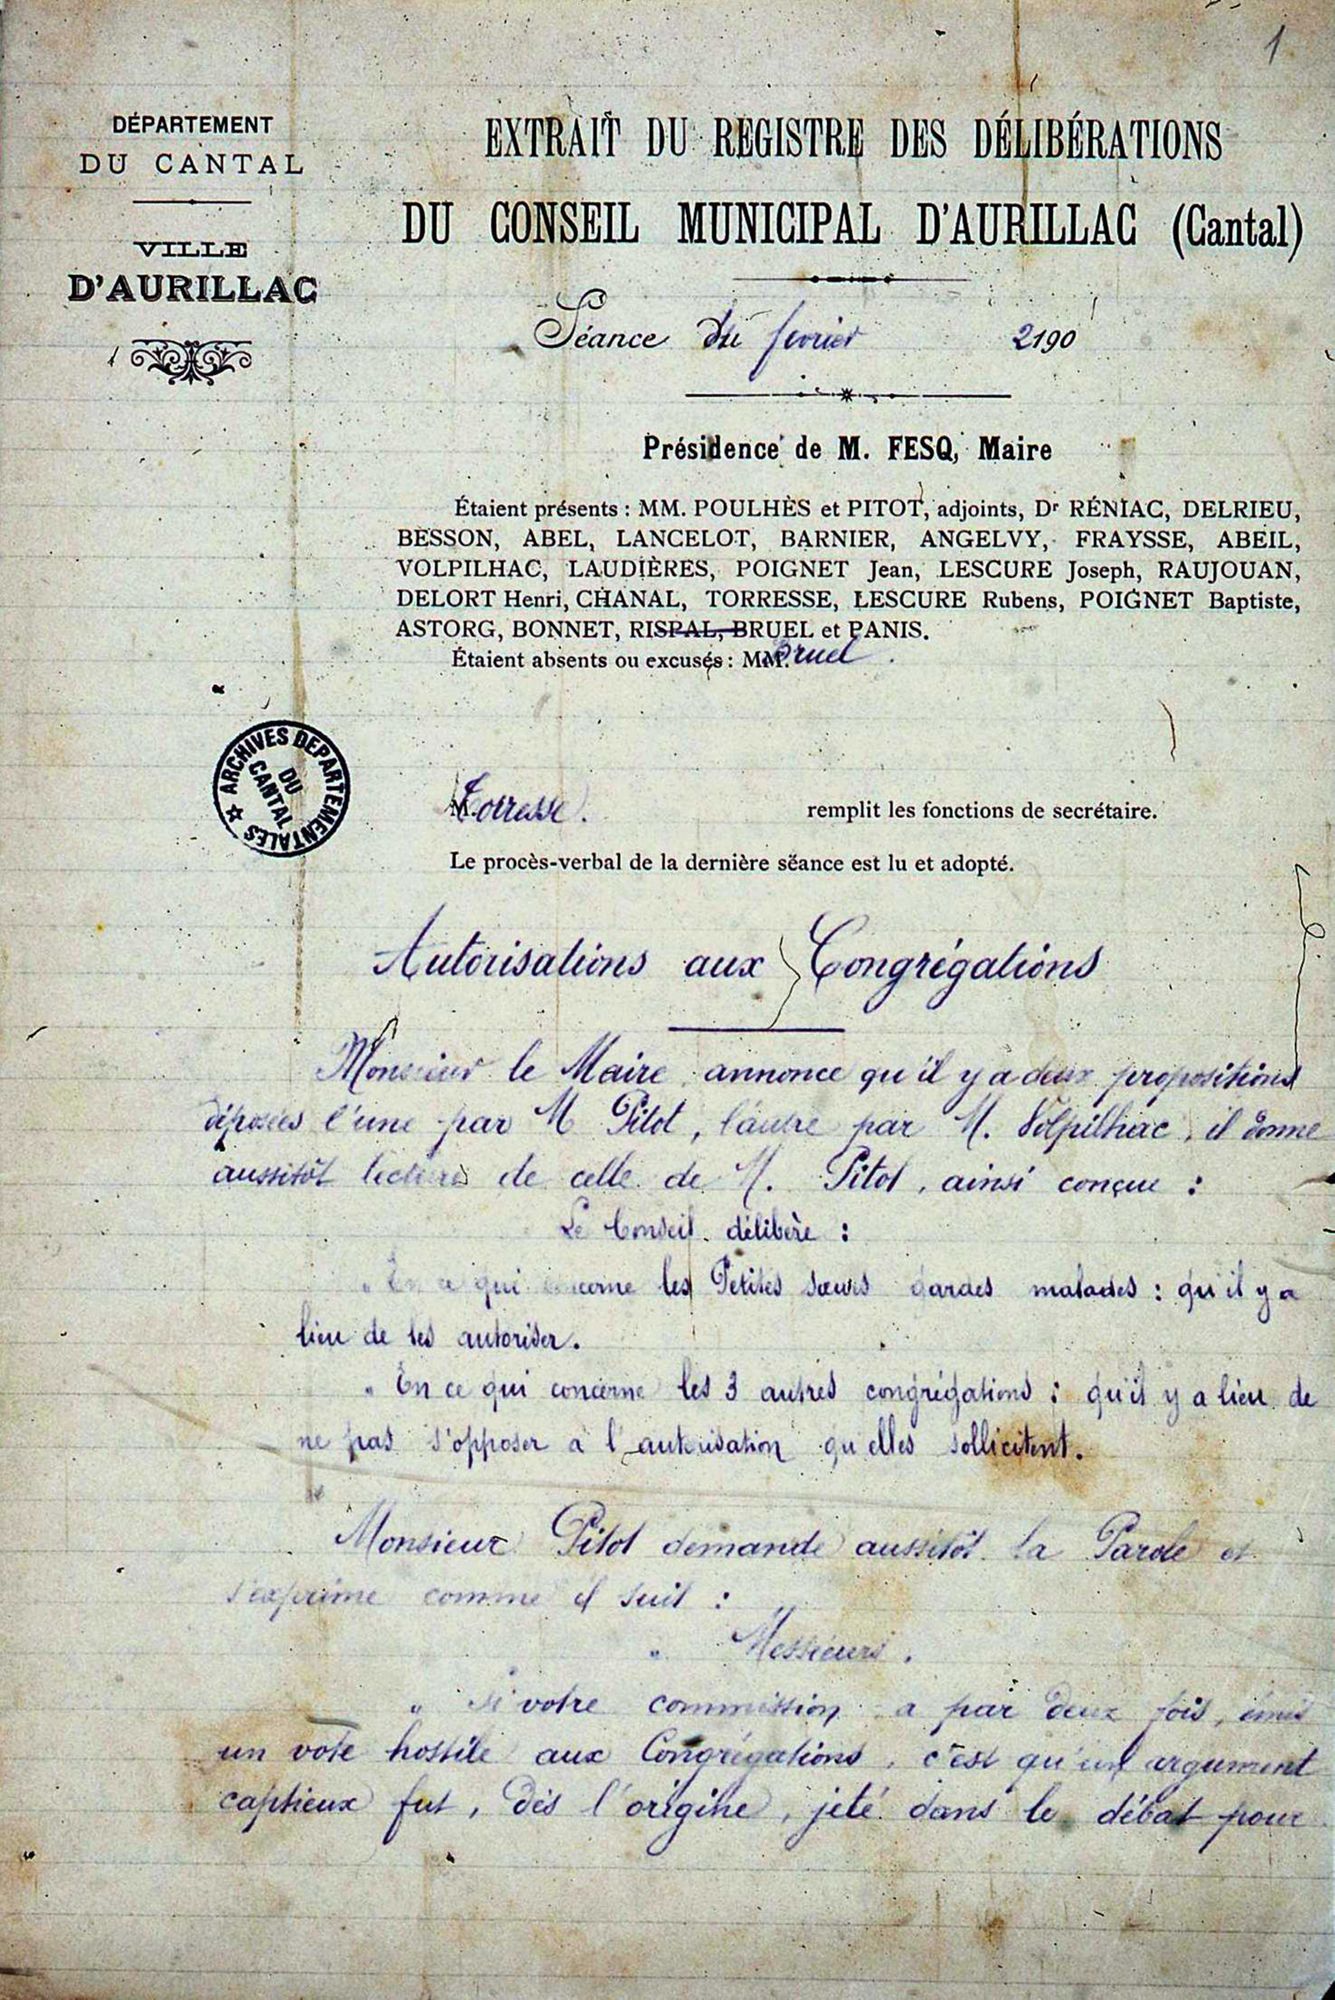 1
DÉPARTEMENT
DU CANTAL
VILLE
D'AURILLAC
EXTRAIT DU REGISTRE DES DÉLIBÉRATIONS
DU CONSEIL MUNICIPAL D'AURILLAC (Cantal)
Séance du février 2190
Présidence de M. FESQ, Maire
Étaient présents : MM. POULHÈS et PITOT, adjoints, Dr RÉNIAC, DELRIEU,
BESSON, ABEL, LANCELOT, BARNIER, ANGELVY, FRAYSSE, ABEIL,
VOLPILHAC, LAUDIÈRES, POIGNET Jean, LESCURE Joseph, RAUJOUAN,
DELORT Henri, CHANAL, TORRESSE, LESCURE Rubens, POIGNET Baptiste,
ASTORG, BONNET, RISPAL, BRUEL et PANIS.
Étaient absents ou excusés : MM. Bruel.
ARCHIVES DEPARTEMENTALES
DU
CANTAL
M. Torresse. remplit les fonctions de secrétaire.
Le procès-verbal de la dernière séance est lu et adopté.
Autorisations aux Congrégations
Monsieur le Maire annonce qu'il y a deux propositions
déposées l'une par M Pitot, l'autre par M. Volpilhac, il donne
aussitôt lecture de celle de M. Pitot, ainsi conçue :
Le Conseil délibère :
" En ce qui concerne les Petites sœurs gardes malades : qu'il y a
lieu de les autoriser.
" En ce qui concerne les 3 autres congrégations : qu'il y a lieu de
ne pas s'opposer à l'autorisation qu'elles sollicitent.
Monsieur Pitot demande aussitôt la Parole et
s'exprime comme il suit :
" Messieurs.
" Si votre commission a par deux fois, émis
un vote hostile aux Congrégations, c'est qu'un argument
captieux fut, dès l'origine, jeté dans le débat pour